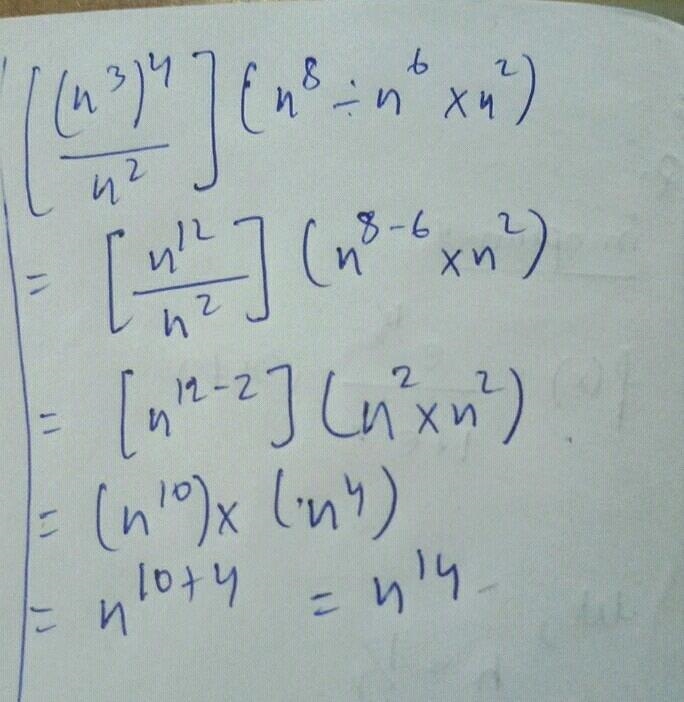 [(n³)⁴/n²] (n⁸ ÷ n⁶ × n²)
= [n¹²/n²] (n⁸⁻⁶ × n²)
= [n¹²⁻²] (n² × n²)
= (n¹⁰) × (n⁴)
= n¹⁰⁺⁴ = n¹⁴